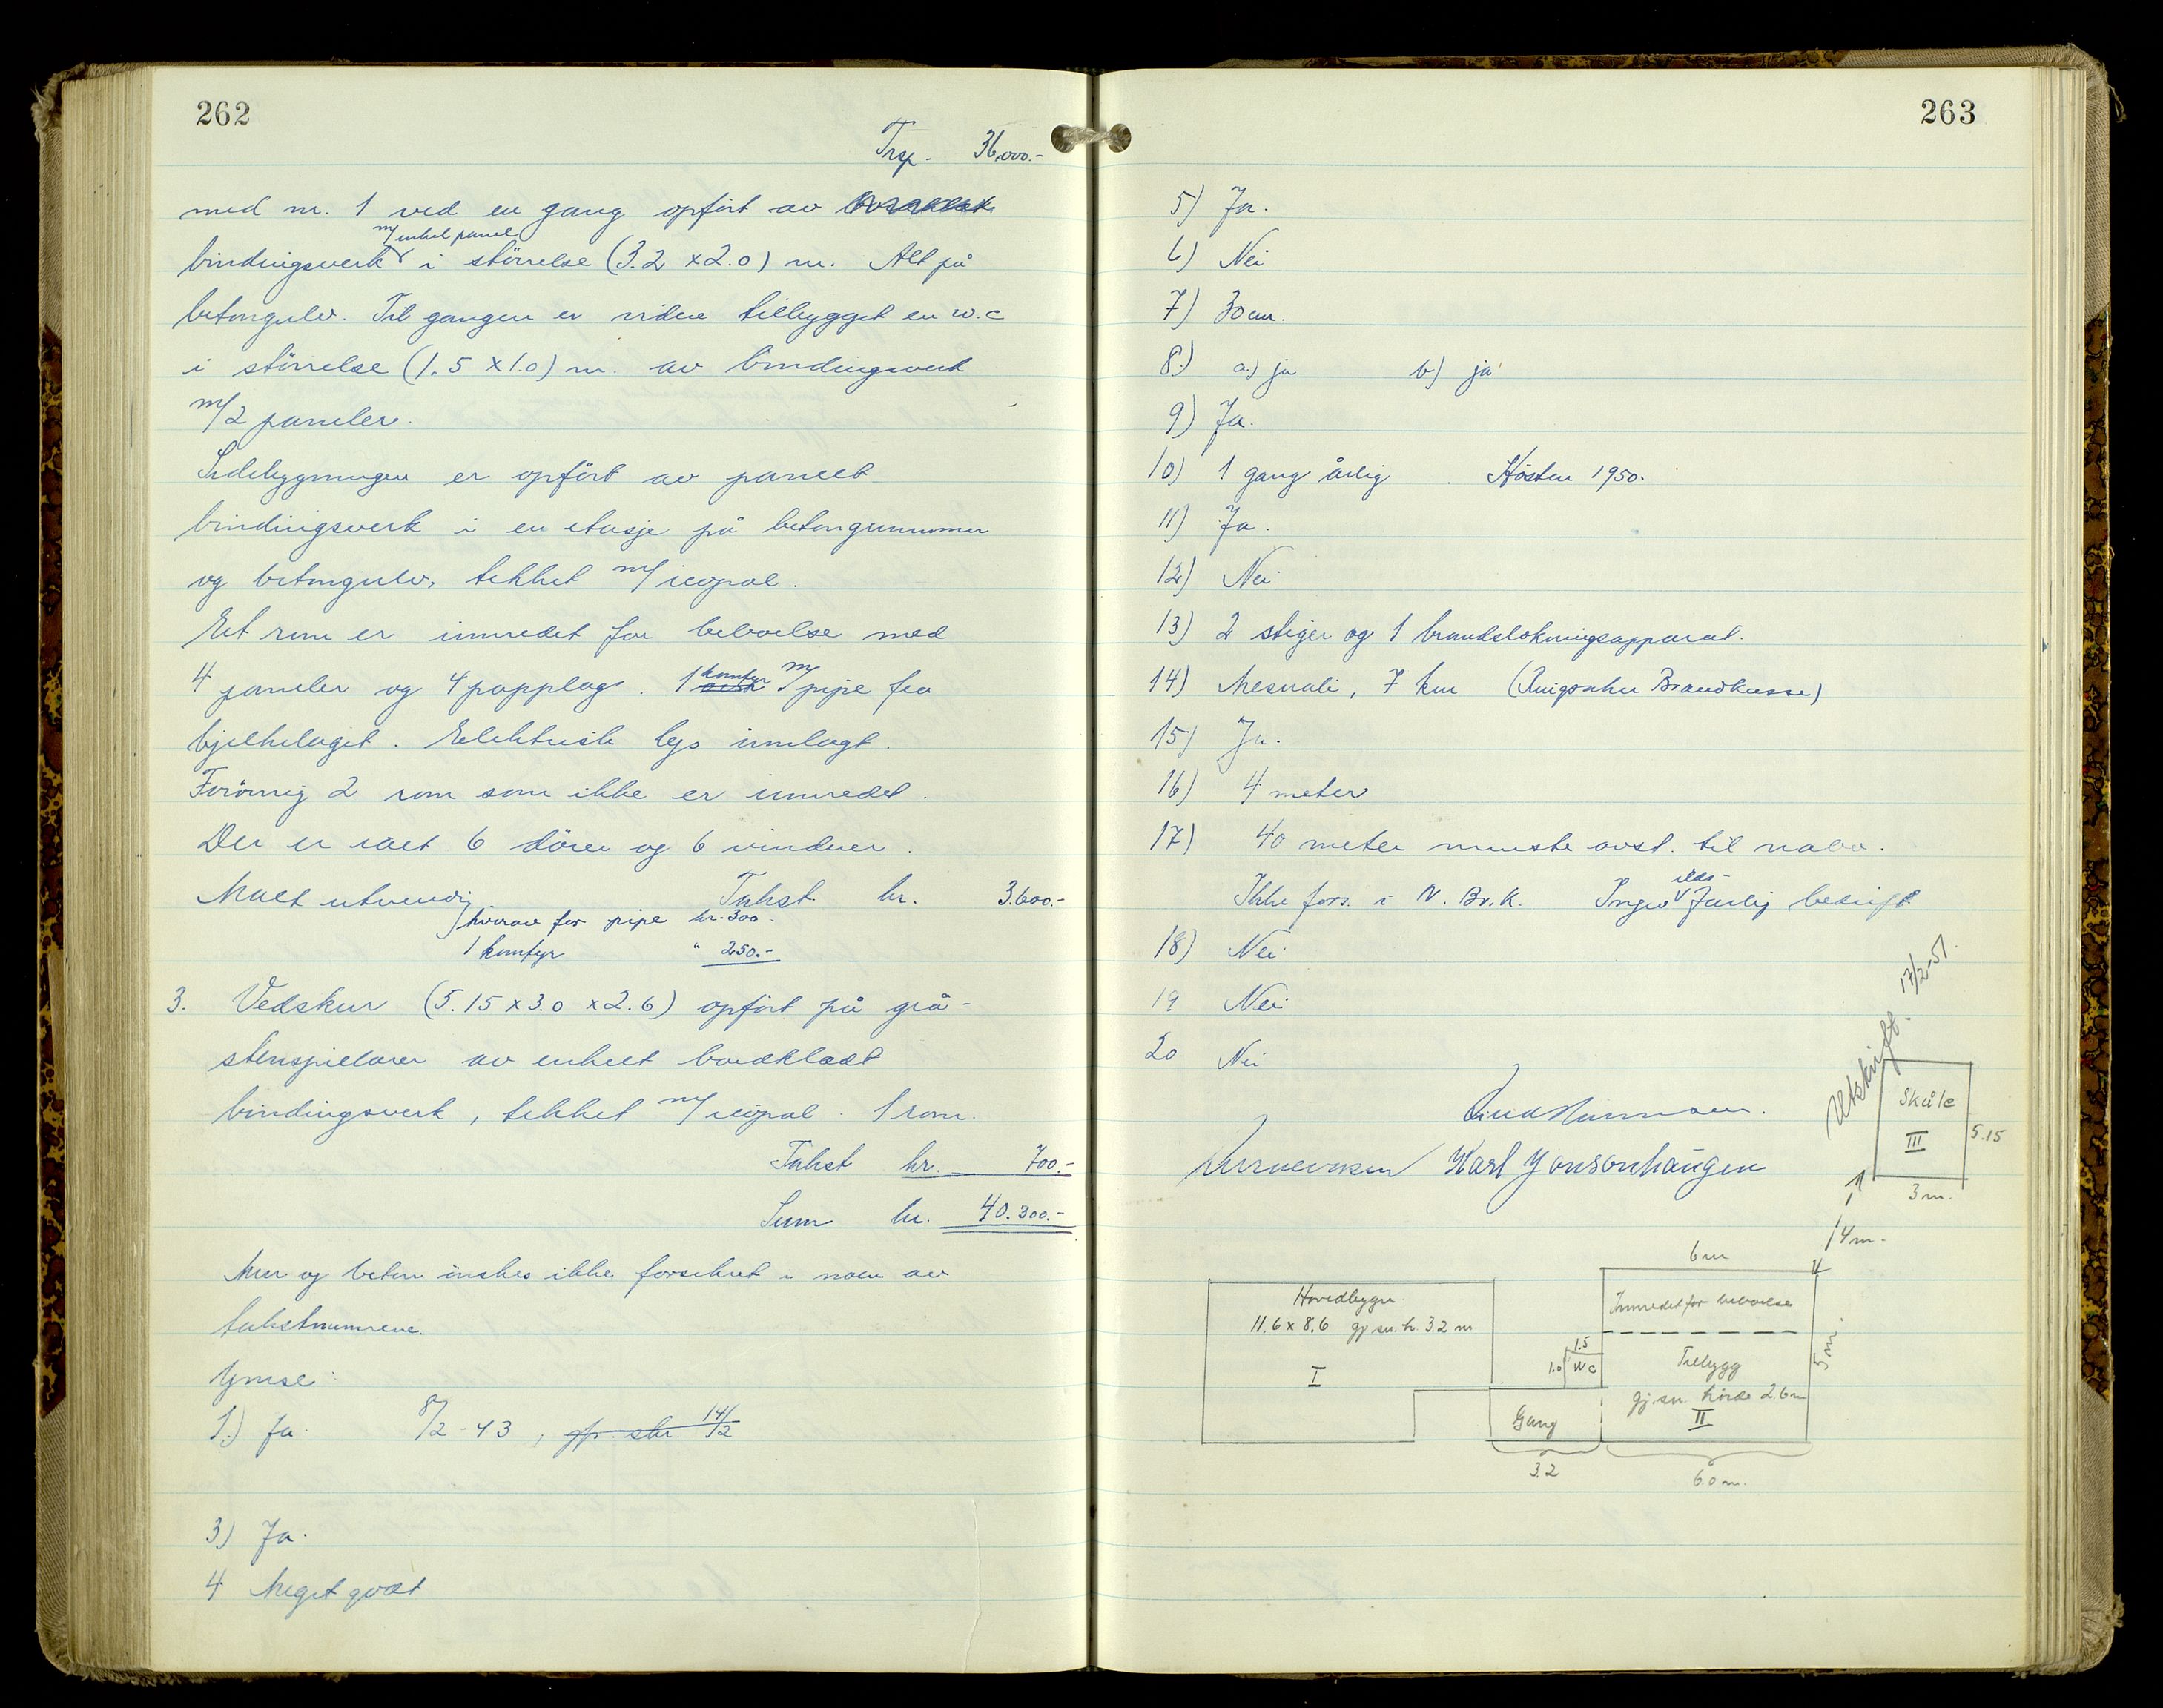 262
Trsp. 36,000.-
med nr. 1 ved en gang opført av
m/enkel panel
bindingsverk i störrelse (3.2 x 2.0) m. Alt på
betongulv. Til gangen er videre tilbygget en w.c
i störrelse (1.5 x 1.0) m. av bindingsverk
m/2 paneler.
Sidebygningen er opført av panelt
bindingsverk i en etasje på betongrunnmur
og betongulv, tekket m/icopal.
Et rom er innredet for beboelse med
4 paneler og 4 papplag. 1 komfyr m/pipe fra
bjelkelaget. Elektrisk lys innlagt.
Forövrig 2 rom som ikke er innredet.
Der er ialt 6 dörer og 6 vinduer.
Malt utvendig Takst kr. 3.600.-
hvorav for pipe kr. 300.
1 komfyr " 250.-
3. Vedskur (5.15 x 3.0 x 2.6) opført på grå-
stenspielarer av enkelt bordklædt
bindingsverk, tekket m/icopal. 1 rom.
Takst kr. 700.-
Sum kr. 40.300.-
Mur og beton önskes ikke forsikret i noen av
takstnumrene.
Ymse:
1.) Ja. 8/2-43, 14/2
3) Ja.
4 Meget godt
263
5) Ja.
6) Nei
7) 30 cm.
8.) a.) ja b) ja
9) Ja.
10) 1 gang årlig. Hösten 1950.
11) Ja.
12) Nei
13) 2 stiger og 1 brandslokningsapparat.
14) Mesnali, 7 km (Ringsaker Brandkasse)
15) Ja.
16) 4 meter
17) 40 meter minste avst. til nabo.
Ikke fors. i N. Br.K. Ingen ilds-farlig bedrift
18) Nei
19 Nei
20 Nei
Utskrift. 17/2-51.
Karl Jonsonhaugen
Skåle
III
5.15
3 m.
14 m.
6 m
Hovedbygn
11.6 x 8.6 gj.sn.h. 3.2 m
I
Innredet for beboelse
5 m.
1.5
1.0
WC
Tilbygg
gj.sn. höide 2.6 m
II
Gang
3.2
6.0 m.